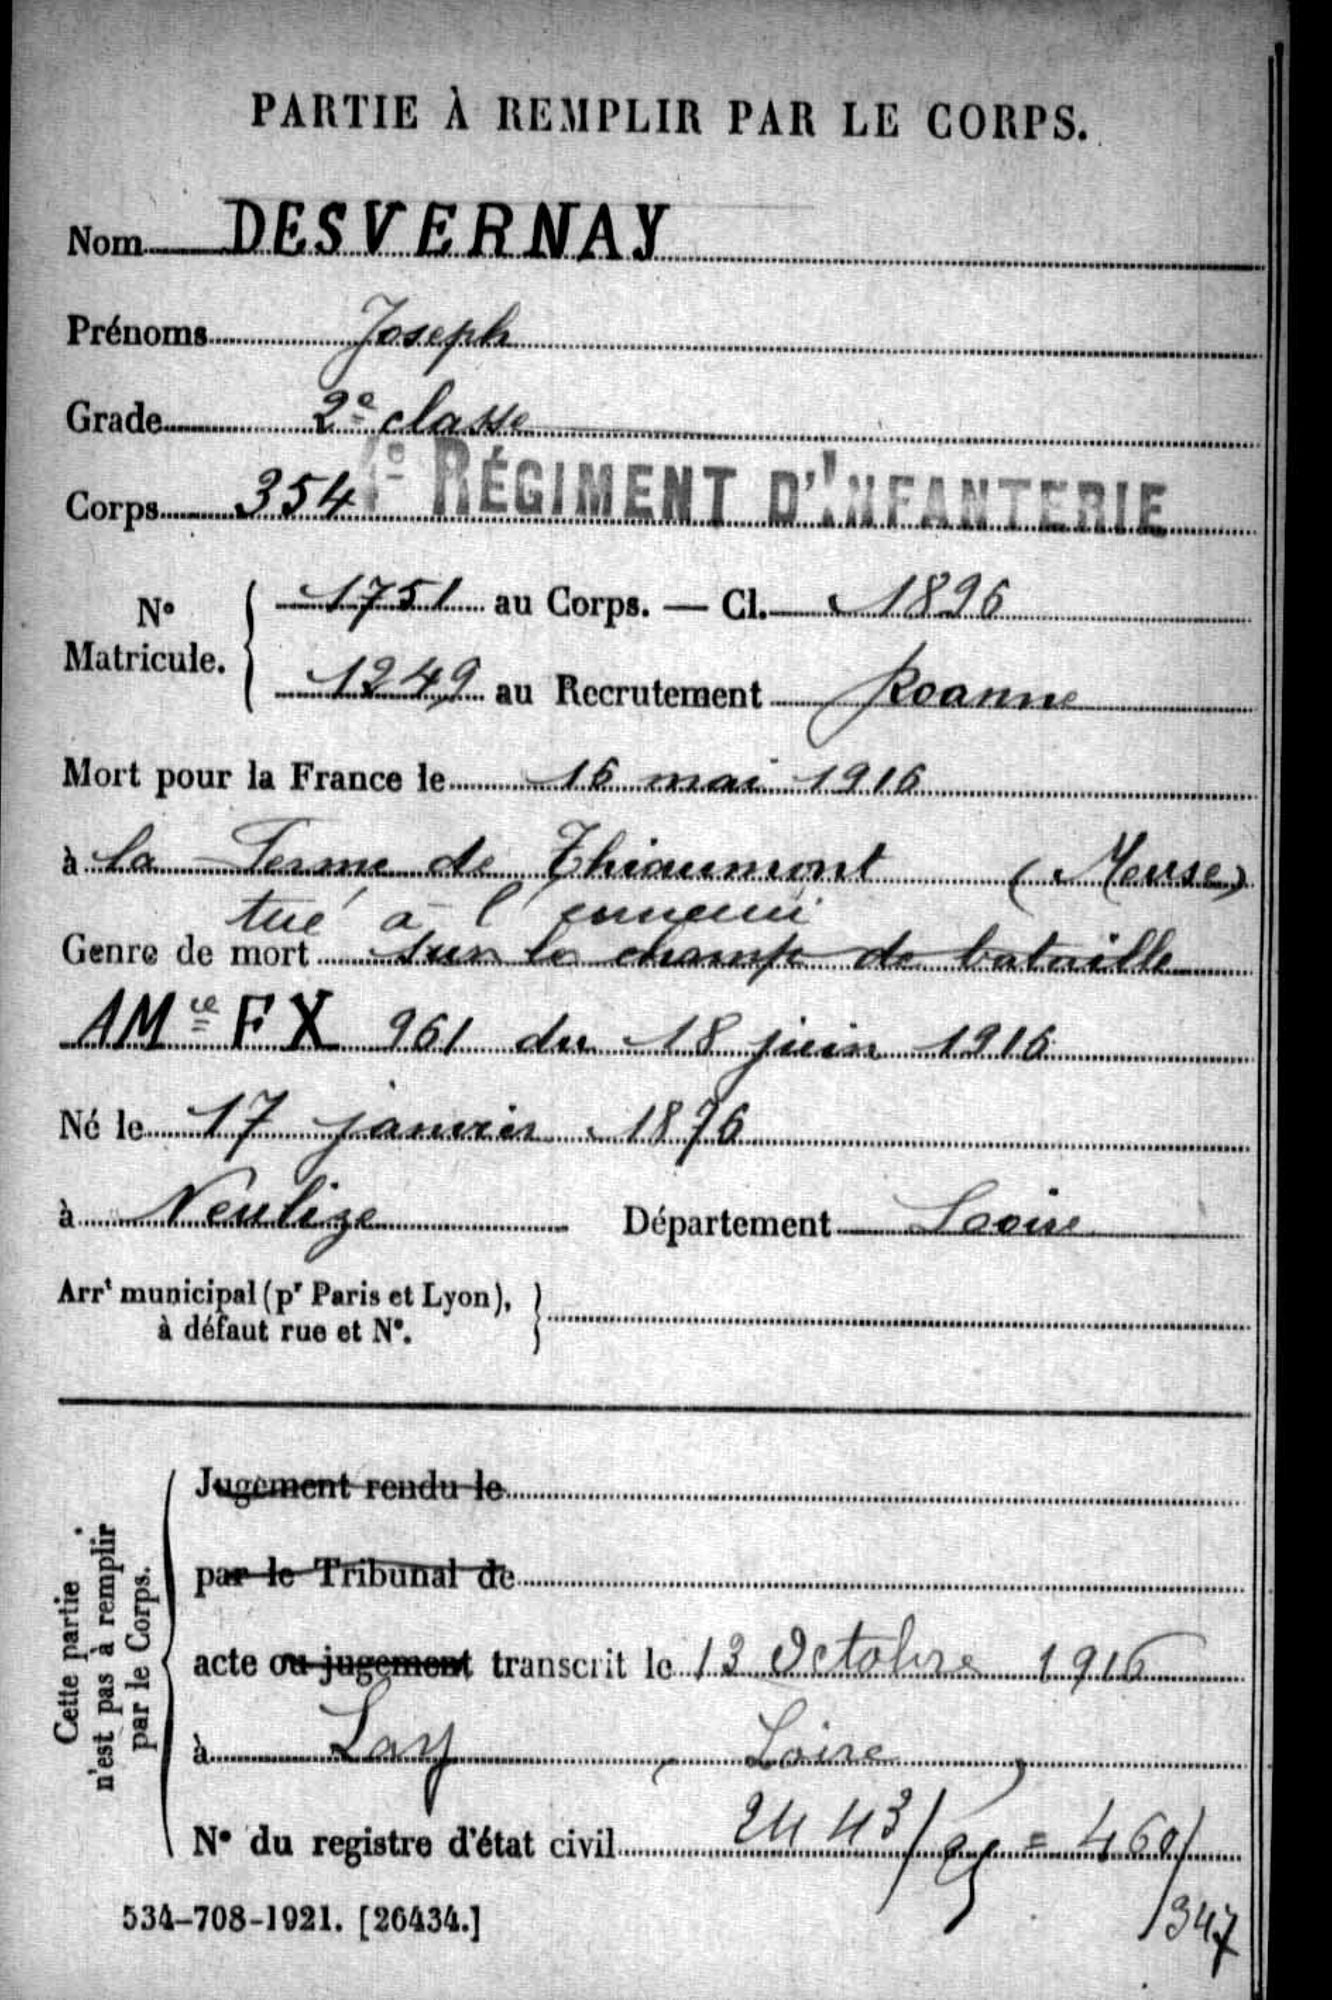 PARTIE À REMPLIR PAR LE CORPS.
Nom DESVERNAY
Prénoms Joseph
Grade 2e classe
Corps 354 4e RÉGIMENT D'INFANTERIE
No Matricule. { 1751 au Corps. — Cl. 1896
1249 au Recrutement Roanne
Mort pour la France le 16 mai 1916
à la Ferme de Thiaumont (Meuse)
tué à l'ennemi
Genre de mort sur le champ de bataille
AMce FX 961 du 18 juin 1916
Né le 17 janvier 1876
à Neulize Département Loire
Arrt municipal (pr Paris et Lyon),
à défaut rue et No.
Cette partie
n'est pas à remplir
par le Corps.
Jugement rendu le
par le Tribunal de
acte ou jugement transcrit le 13 Octobre 1916
à Lay, Loire
No du registre d'état civil 2443/ = 460/
/347
534-708-1921. [26434.]